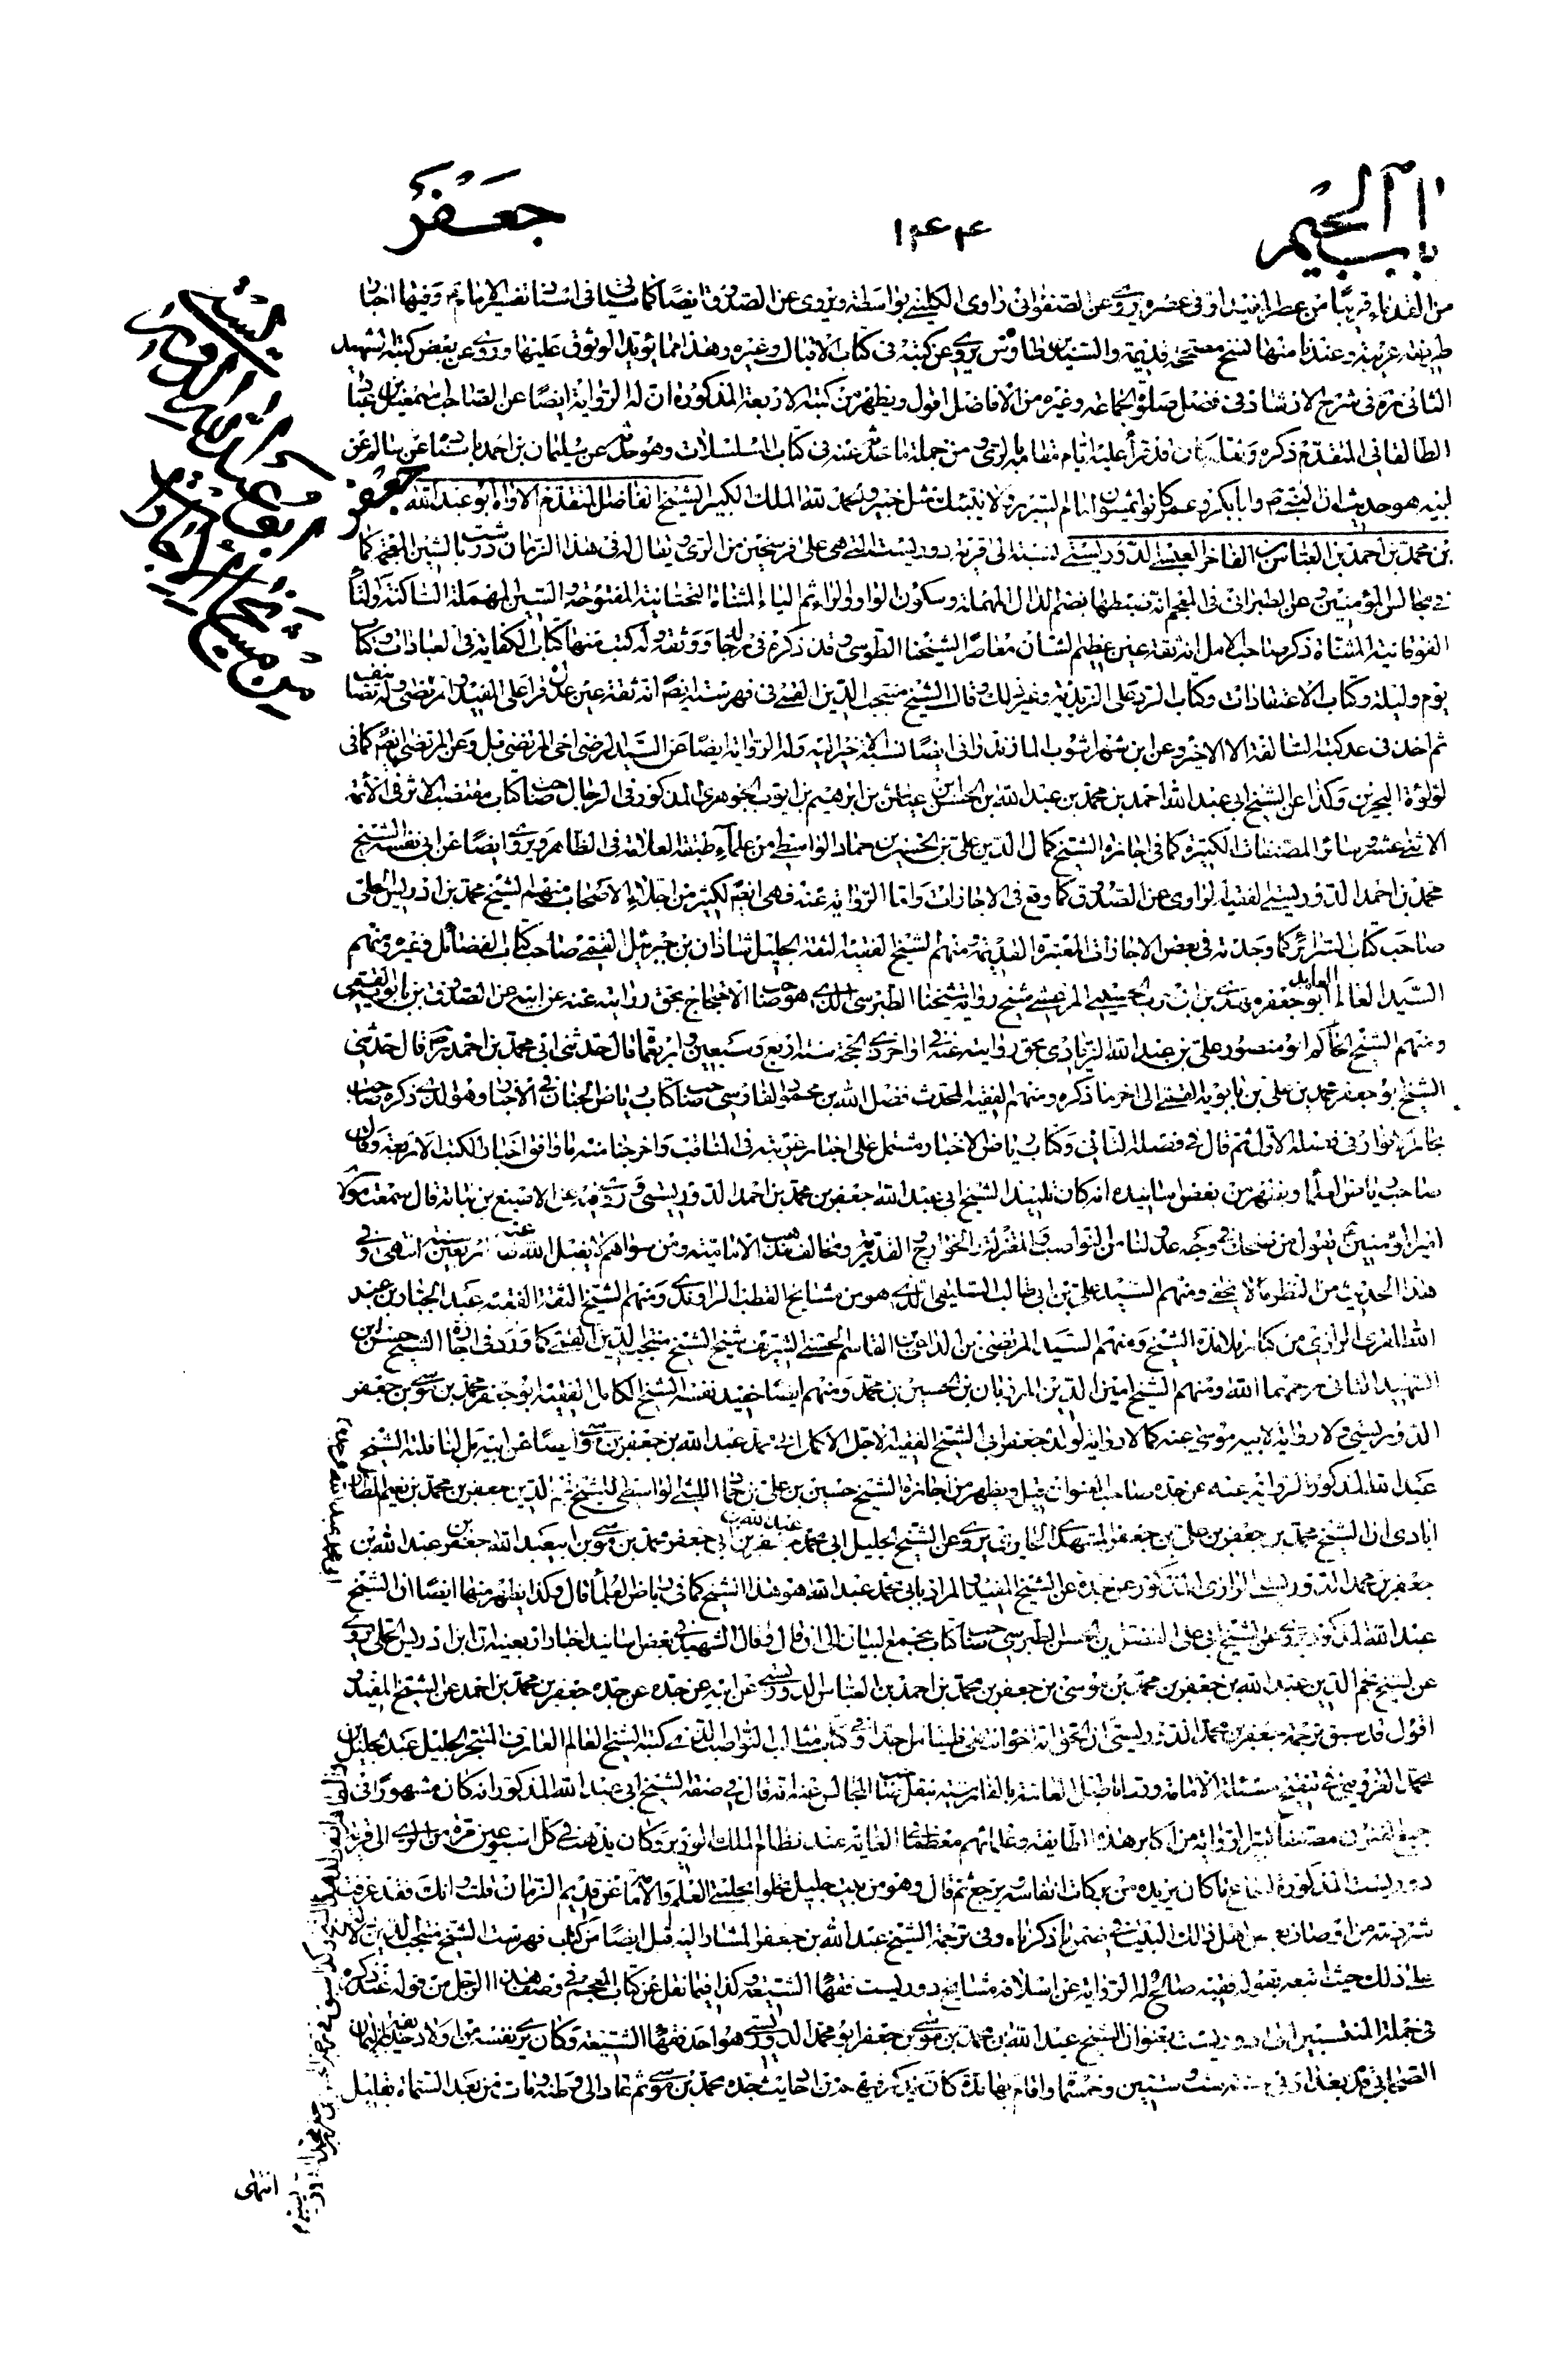 باب الجيم
١٤٤
جعفر
من القدماء قريبا من عصر المفيد او فى عصره يروى عن الصفوانى راوى الكلينى بواسطة ويروى عن الصدوق ايضا كما سيأتى فى اسناد تفسير الامام وفيها اخبار
طريفة غريبة وعندنا منها نسخ مصححة قديمة والسيد بن طاوس يروى عن كتبه فى كتاب الاقبال وغيره وهذا مما يؤيد الوثوق عليها وروى عن بعض كتبه الشهيد
الثانى ره فى شرح الارشاد فى فضل صلوة الجماعة وغيره من الافاضل اقول ويظهر من كتبه الاربعة المذكورة ان له الرواية ايضا عن الصاحب اسمعيل بن عباد
الطالقانى المتقدم ذكره قد قرأ عليه ايام مقامه بالرى من جملة ما حدث عنه فى كتاب المسلسلات وهو حدث عن سليمان بن احمد باسناد عن سالم عن
ابيه هو حديث ان النبى وابابكر وعمر كانوا يمشون امام السرير ولا ينبئك مثل خبير والحمد لله الملك الكبير الشيخ الفاضل المتقدم الاواه ابو عبد الله جعفر
بن محمد بن احمد بن العباس الفاخر العبسى الدوريستى نسبة الى قرية دوريست التى هى على فرسخين من الرى ويقال له فى هذا الزمان درشت بالشين المعجمة كما
فى مجالس المؤمنين وعن الطبرانى فى المعجم انه ضبطها بضم الدال المهملة وسكون الواو والراء ثم الياء المثناة التحتانية المفتوحة والسين المهملة الساكنة والتاء
الفوقانية المثناة ذكر صاحب الامل انه ثقة عين عظيم الشان معاصر لشيخنا الطوسى وقد ذكره فى رجاله ووثقه وله كتب منها كتاب الكفاية فى العبادات وكتاب
يوم وليلة وكتاب الاعتقادات وكتاب الرد على الزيدية وغير ذلك وقال الشيخ منتجب الدين القمى فى فهرسته ايضا انه ثقة عين عدل قرأ على المفيد والمرتضى وله تصانيف
ثم اخذ فى عد كتبه السالفة الا الاخير وعن ابن شهراشوب المازندرانى ايضا نسبة الاخير اليه وله الرواية ايضا عن السيد الرضى اخى المرتضى قبل وعن المرتضى ايضا كما فى
لؤلؤة البحرين وكذا عن الشيخ ابى عبد الله احمد بن محمد بن عبد الله بن الحسن بن عياش بن ابرهيم بن ايوب الجوهرى المذكور فى الرجال صاحب كتاب مقتضب الاثر فى الائمة
الاثنى عشر وسائر المصنفات الكثيرة كما فى اجازة الشيخ كمال الدين على بن الحسين بن حماد الواسطى من علماء طبقة العلامة فى الظاهر ويروى ايضا عن ابى نفسه الشيخ
محمد بن احمد الدوريستى الفقيه الراوى عن الصدوق كما وقع فى الاجازات واما الرواية عنه فهى ايضا لكثير من اجلاء الاصحاب منهم الشيخ محمد بن ادريس الحلى
صاحب كتاب السرائر كما وجدته فى بعض الاجازات المعتبرة القديمة ومنهم الشيخ الفقيه الثقة الجليل شاذان بن جبرئيل القمى صاحب كتاب الفضائل وغيره ومنهم
السيد العالم العابد ابو جعفر مهدى بن ابى حرب الحسينى المرعشى شيخ رواية شيخنا الطبرسى الذى هو صاحب الاحتجاج بحق روايته عنه عن ابيه عن الصدوق بن بابويه القمى
ومنهم الشيخ الحاكم ابو منصور على بن عبد الله الزيادى بحق روايته عنه فى اواخر ذى الحجة سنة اربع وسبعين واربعمائة قال حدثنى ابى محمد بن احمد قال حدثنى
الشيخ ابو جعفر محمد بن على بن بابويه القمى الى اخر ما ذكره ومنهم الفقيه المحدث فضل الله بن محمود الفارسى صاحب كتاب رياض الجنان فى الاخبار وهو الذى ذكره صاحب
بحار الانوار فى فصله الاول ثم قال فى فصله الثانى وكتاب رياض الاخبار مشتمل على اخبار غريبة فى المناقب واخرجنا منه ما وافق اخبار الكتب الاربعة وقال
صاحب رياض العلماء ويظهر من بعض اسانيده انه كان تلميذ الشيخ ابى عبد الله جعفر بن محمد بن احمد الدوريستى وروى فيه عن الاصبغ بن نباتة قال سمعت مولاى
امير المؤمنين يقول من ضحك فى وجه عدو لنا من النواصب والمعتزلة والخوارج والقدرية ومخالف مذهب الامامية ومن سواهم لا يقبل الله منه طاعة اربعين سنة انتهى وفى
هذا الحديث من النظر ما لا يخفى ومنهم السيد على بن ابى طالب السليقى الذى هو من مشايخ القطب الراوندى ومنهم الشيخ الثقة الفقيه عبد الجبار بن عبد
الله المقرى الرازى من كبار تلامذة الشيخ ومنهم السيد المرتضى بن الداعى بن القاسم الحسنى الشريف شيخ الشيخ منتجب الدين القمى كما ورد فى اجازة الشيخ حسن بن
الشهيد الثانى رحمهما الله ومنهم الشيخ امين الدين المرزبان بن الحسين بن محمد ومنهم ايضا حفيد نفسه الشيخ الكامل الفقيه ابو جعفر محمد بن موسى بن جعفر
الدوريستى ولا رواية لابيه موسى عنه كما لا رواية لولد جعفر ابى الشيخ الفقيه الاجل الاكمل ابى محمد عبد الله بن جعفر بن موسى ايضا عن ابيه بل لنا فلته الشيخ
عبد الله المذكور الرواية عنه عن جده صاحب العنوان قيل ويظهر من اجازة الشيخ حسين بن على بن حماد الليثى الواسطى للشيخ نجم الدين جعفر بن محمد بن نعيم المطار
ابادى ان الشيخ محمد بن جعفر بن على بن جعفر المشهدى الحايرى يروى عن الشيخ الجليل ابى محمد عبد الله بن جعفر بن ابى جعفر محمد بن موسى بن ابى عبد الله جعفر بن عبد الله بن
جعفر بن محمد الدوريستى الرازى المذكور عن جده عن الشيخ المفيد والمراد بابى محمد عبد الله هو هذا الشيخ كما فى رياض العلماء قال وكذا يظهر منها ايضا ان الشيخ
عبد الله المذكور يروى عن الشيخ ابى على الفضل بن الحسن الطبرسى صاحب كتاب مجمع البيان الى ان قال وقال الشهيد فى بعض اسانيد اخبار اربعينه ان ابن ادريس الحلى يروى
عن الشيخ نجم الدين عبد الله بن جعفر بن محمد بن موسى بن جعفر بن محمد بن احمد بن العباس الدوريستى عن ابيه عن جده عن جده جعفر بن محمد بن احمد عن الشيخ المفيد
اقول قد سبق ترجمة جعفر بن محمد الدوريستى فليتامل جدا وفى كتاب مثالب النواصب الذى كتبه الشيخ العالم العارف المتبحر الجليل عبد الجليل بن
محمد القزوينى فى تنقيح مسئلة الامامة ورد اباطيل العامة بالفارسية بنقل صاحب المجالس عنه انه قال فى صفة الشيخ ابى عبد الله المذكور انه كان مشهورا فى
جميع الفنون مصنفا كثير الرواية من اكابر هذه الطايفة وعلمائهم معظما فى الغاية عند نظام الملك الوزير وكان يذهب فى كل اسبوعين مرة من الرى الى قرية
دوريست المذكورة لسماع ما كان يريده من بركات انفاسه ويرجع ثم قال وهو من بيت جليل تحلوا بحليتى العلم والامامة عن قديم الزمان قلت وانك فقد عرفت
شرذمة من اوصاف بعض اهل ذلك البيت فى ضمن ما ذكرناه وفى ترجمة الشيخ عبد الله بن جعفر المشار اليه قبل ايضا من كتاب فهرست الشيخ منتجب الدين دلالة
على ذلك حيث اتبعه بقوله فقيه صالح له الرواية عن اسلافه مشايخ دوريست فقهاء الشيعة وكذا فيما نقل عن كتاب المعجم فى وصف هذا الرجل من قوله عند ذكره
فى جملة المنتسبين الى دوريست بعنوان الشيخ عبد الله بن محمد بن موسى بن جعفر ابو محمد الدوريستى هو احد فقهاء الشيعة وكان يرى نفسه من اولاد حذيفة بن اليمان
الصحابى قدم بغداد فى سنة ست وستين وخمسمائة واقام بها مدة كان يذكر فيهم من احاديث جده محمد بن موسى ثم عاد الى وطنه ومات من بعد الستمائة بقليل
انتهى